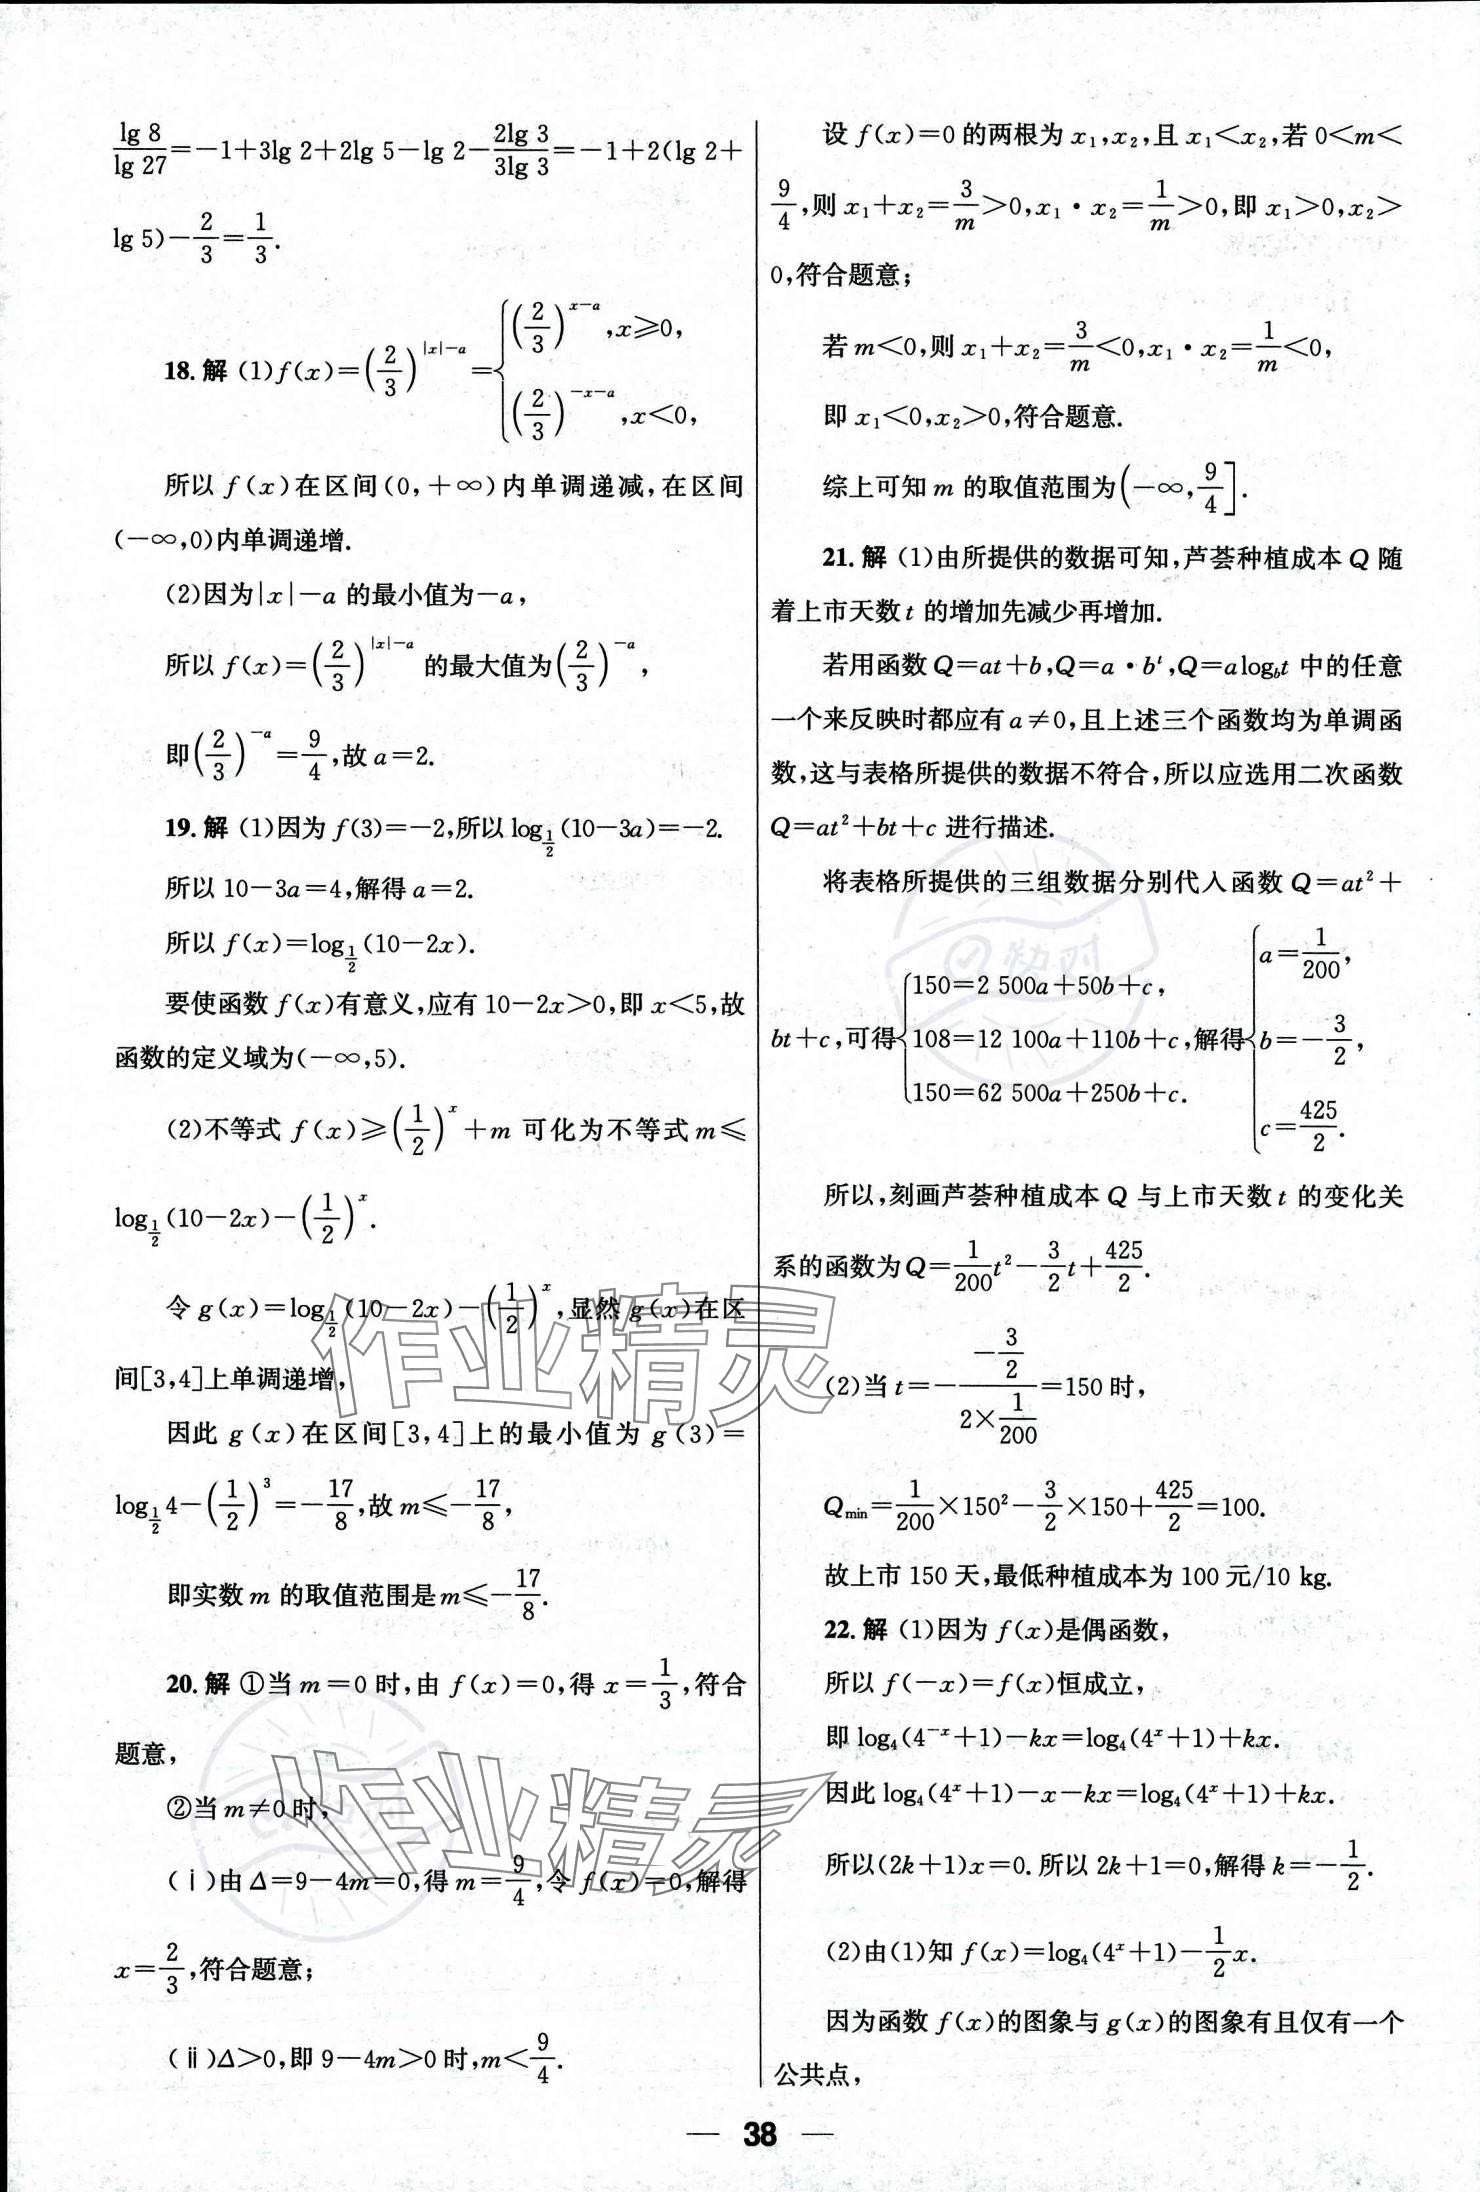 lg 8/lg 27=-1+3lg 2+2lg 5-lg 2-2lg 3/3lg 3=-1+2(lg 2+
lg 5)-2/3=1/3.
18. 解 (1)f(x)=(2/3)^{|x|-a}={(2/3)^{x-a},x≥0,
(2/3)^{-x-a},x<0,
所以 f(x)在区间(0,+∞)内单调递减,在区间
(-∞,0)内单调递增.
(2)因为|x|-a 的最小值为-a,
所以 f(x)=(2/3)^{|x|-a} 的最大值为(2/3)^{-a},
即(2/3)^{-a}=9/4,故 a=2.
19. 解 (1)因为 f(3)=-2,所以 log_{1/2}(10-3a)=-2.
所以 10-3a=4,解得 a=2.
所以 f(x)=log_{1/2}(10-2x).
要使函数 f(x)有意义,应有 10-2x>0,即 x<5,故
函数的定义域为(-∞,5).
(2)不等式 f(x)≥(1/2)^x+m 可化为不等式 m≤
log_{1/2}(10-2x)-(1/2)^x.
令 g(x)=log_{1/2}(10-2x)-(1/2)^x,显然 g(x)在区
间[3,4]上单调递增,
因此 g(x)在区间[3,4]上的最小值为 g(3)=
log_{1/2}4-(1/2)^3=-17/8,故 m≤-17/8,
即实数 m 的取值范围是 m≤-17/8.
20. 解 ①当 m=0 时,由 f(x)=0,得 x=1/3,符合
题意,
②当 m≠0 时,
(ⅰ)由 Δ=9-4m=0,得 m=9/4,令 f(x)=0,解得
x=2/3,符合题意;
(ⅱ)Δ>0,即 9-4m>0 时,m<9/4.
设 f(x)=0 的两根为 x₁,x₂,且 x₁<x₂,若 0<m<
9/4,则 x₁+x₂=3/m>0,x₁·x₂=1/m>0,即 x₁>0,x₂>
0,符合题意;
若 m<0,则 x₁+x₂=3/m<0,x₁·x₂=1/m<0,
即 x₁<0,x₂>0,符合题意.
综上可知 m 的取值范围为(-∞,9/4].
21. 解 (1)由所提供的数据可知,芦荟种植成本 Q 随
着上市天数 t 的增加先减少再增加.
若用函数 Q=at+b,Q=a·b^t,Q=alog_b t 中的任意
一个来反映时都应有 a≠0,且上述三个函数均为单调函
数,这与表格所提供的数据不符合,所以应选用二次函数
Q=at²+bt+c 进行描述.
将表格所提供的三组数据分别代入函数 Q=at²+
bt+c,可得{150=2 500a+50b+c,
108=12 100a+110b+c,
150=62 500a+250b+c.
解得{a=1/200,
b=-3/2,
c=425/2.
所以,刻画芦荟种植成本 Q 与上市天数 t 的变化关
系的函数为 Q=1/200t²-3/2t+425/2.
(2)当 t=-(-3/2)/(2×1/200)=150 时,
Q_min=1/200×150²-3/2×150+425/2=100.
故上市 150 天,最低种植成本为 100 元/10 kg.
22. 解 (1)因为 f(x)是偶函数,
所以 f(-x)=f(x)恒成立,
即 log₄(4^{-x}+1)-kx=log₄(4^x+1)+kx.
因此 log₄(4^x+1)-x-kx=log₄(4^x+1)+kx.
所以(2k+1)x=0. 所以 2k+1=0,解得 k=-1/2.
(2)由(1)知 f(x)=log₄(4^x+1)-1/2x.
因为函数 f(x)的图象与 g(x)的图象有且仅有一个
公共点,
— 38 —
作业精灵
作业精灵
快对
快对